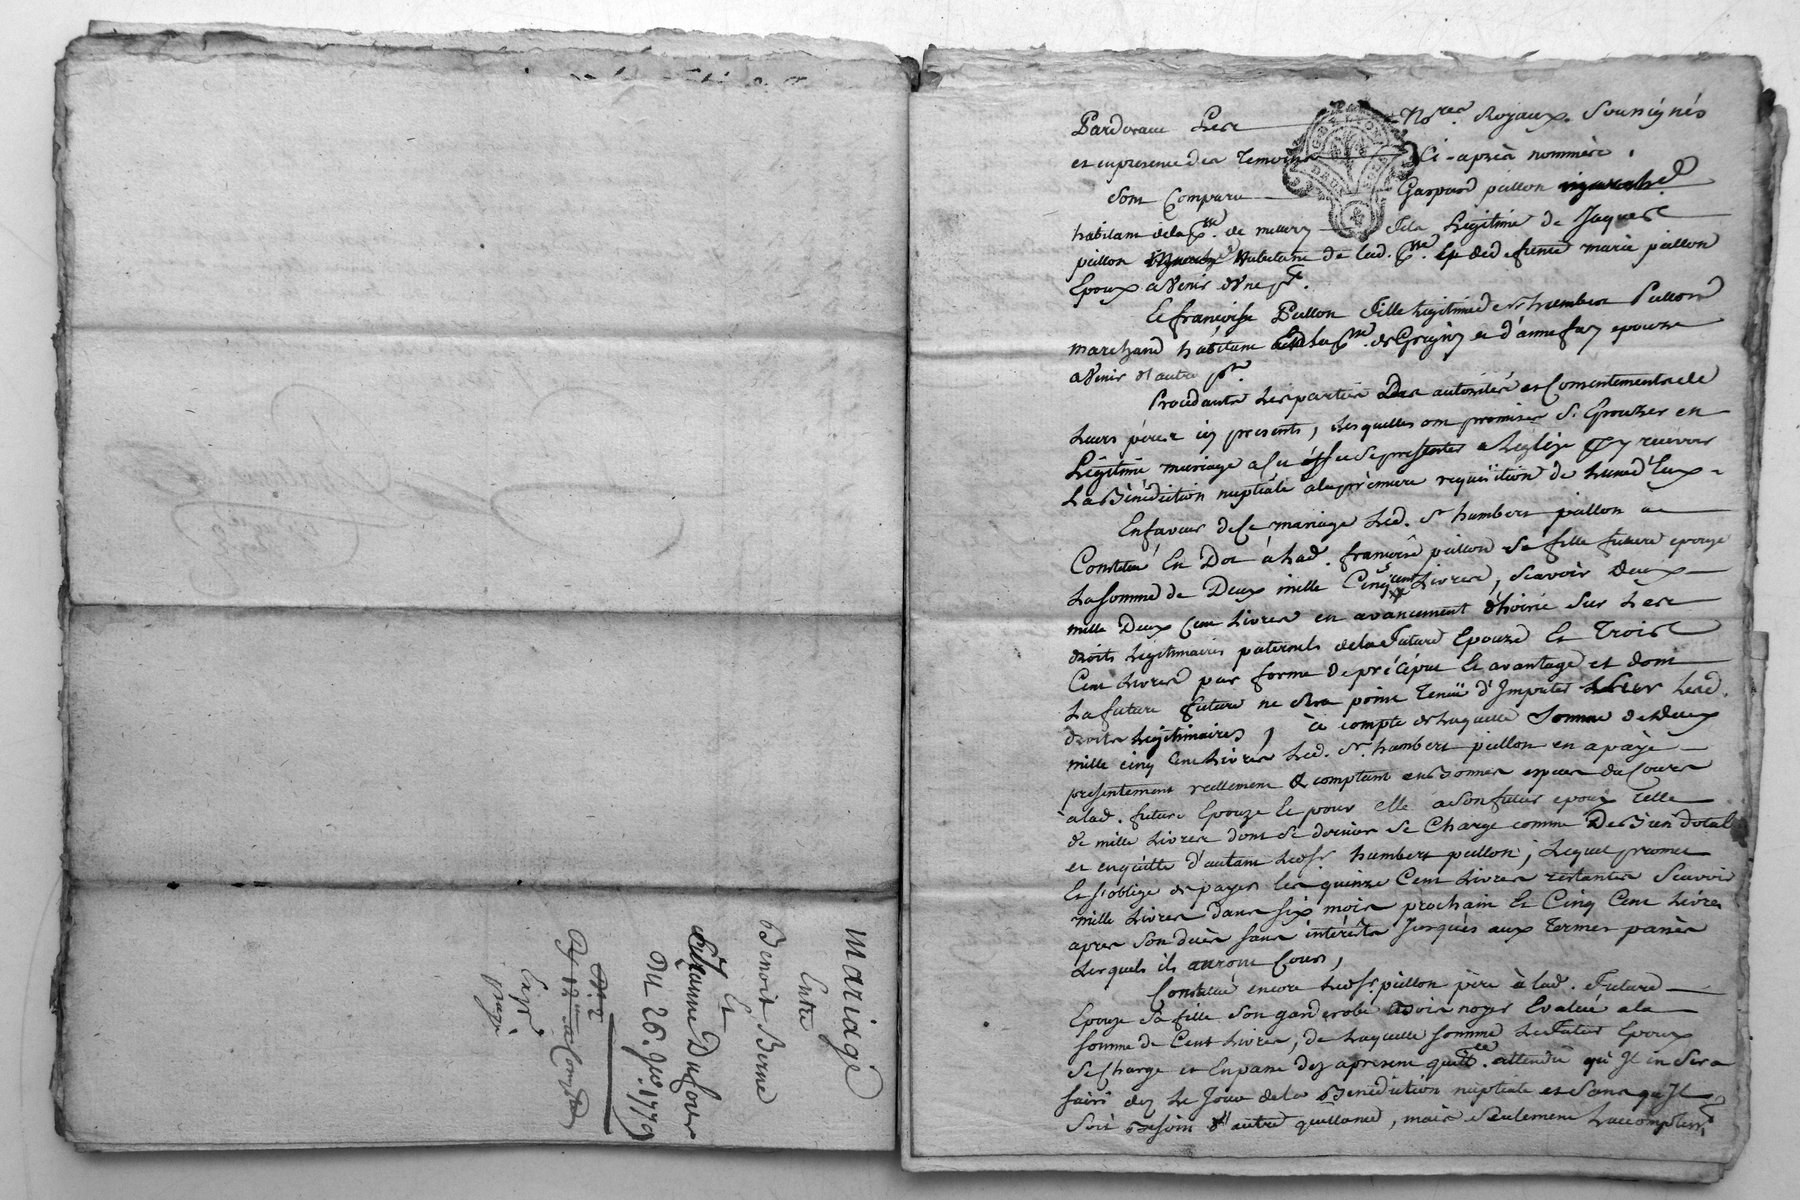 mariage
Entre
Benoit Berne
Et
Dufour
Du 26. 9bre. 1779
Pardevant Les Nores. Royaux. Sousignés
et en presence des Temoins Ci-après nommés.
Sont Comparu Gaspard pullon
habitant de la psse. de Fils Legitime de Jaques
pullon habitant de lad. psse. Et de marie pullon
Epoux a Venir d'Une pt.
Et françoise Pullon fille Legitime de sr. humbert Pullon
marchand habitant de la psse. de Grigny et d'anne fay epouze
a Venir d'autre pt.
Procedants Les parties des autorités et Consentements de
Leurs pères icy presents, Lesquelles ont promises S. Epouzer en
Légitime mariage a se presenter a Leglize pr y recevoir
La Bénédiction nuptiale a la première requisition de Lune d'Eux
En faveur de Ce mariage Led. Sr. humbert pullon a
Constitué En Dot à Lad. françoise pullon Sa fille future epouze
La Somme de Deux mille Cinq cent Livres, Scavoir Deux
mille Deux Cent Livres en avancement d'hoirie Sur Les
droits Legitimaires paternels de la future Epouze Et Trois
Cent Livres par forme De précipue Et avantage et dont
La future future ne Sera point Tenüe d'Imputer Lesd.
droits Legitimaires, à compte de Laquelle Somme de Deux
mille cinq Cent Livres Led. Sr. humbert pullon en a payé
presentement reellement & comptant en bonnes especes du Cours
à lad. future Epouze Et pour elle a Son futur epoux celle
de mille Livres dont Ce dernier Se Charge comme De Bien dotal
et en quitte d'autant Led. Sr. humbert pullon, Lequel promet
Et S'oblige de payer Les quinze Cent Livres restantes Scavoir
mille Livres dans Six mois prochain Et Cinq Cent Livres
apres Son décès Sans intérêts Jusques aux Termes passés
Lesquels ils auront Cours,
Constitué encore Led. Sr. pullon père à lad. Future
Epouze Sa fille Son garderobe bois noyer Evalué a la
Somme de Cent Livres, de Laquelle Somme Le Futur Epoux
Se Charge et En passe des a present quittce. attendu qu'Il en Sera
Saisi des Le Jour de la Bénédiction nuptiale et Sans qu'Il
Soit Besoin d'autre quittance, mais Seulement